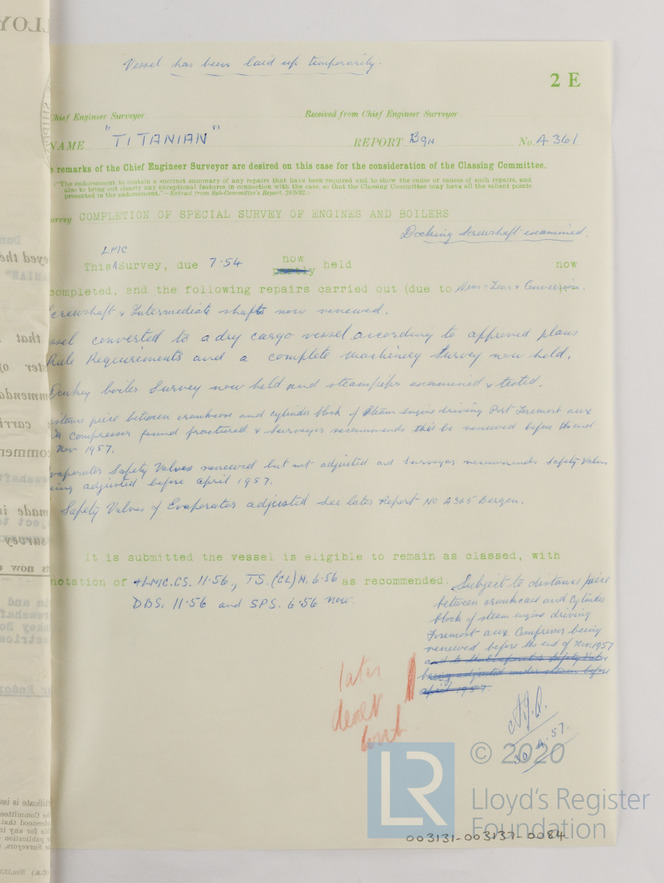 Vessel has been laid up temporarily.
2 E
Chief Engineer Surveyor
Received from Chief Engineer Surveyor
NAME "TITANIAN" REPORT Bgn No. A 361
remarks of the Chief Engineer Surveyor are desired on this case for the consideration of the Classing Committee.
"The endorsement to contain a succinct summary of any repairs that have been required and to show the cause or causes of such repairs, and
also to bring out clearly any exceptional features in connection with the case, so that the Classing Committee may have all the salient points
presented in the endorsement."—Extract from Sub-Committee's Report,
Survey COMPLETION OF SPECIAL SURVEY OF ENGINES AND BOILERS
Docking Screwshaft examined.
LMC
This Survey, due 7.54 now partly held now
completed, and the following repairs carried out (due to Wear & Tear & Conversion.
Screwshaft & Intermediate shafts now renewed.
ssel converted to a dry cargo vessel according to approved plans
Rule Requirements and a complete Machinery Survey now held.
Donkey boiler Survey now held and steampipes examined & tested.
distance piece between crankcase and cylinder block of Steam engine driving Port Foremost aux
Compressor found fractured & Surveyor recommends this be renewed before the end
Nov 1957.
Evaporator Safety Valves renewed but not adjusted and Surveyor recommends Safety Valves
being adjusted before April 1957.
Safety Valves of Evaporator adjusted see later Report No 2365 Bergen.
It is submitted the vessel is eligible to remain as classed, with
notation of +LMC.CS. 11.56, TS.(CL)N. 6.56 as recommended.
DBS. 11.56 and SPS. 6.56 now.
Subject to distance piece
between crankcase and cylinder
block of steam engine driving
Foremost aux Compressor being
renewed before the end of Nov 1957
and to the Evaporator Safety Valves
being adjusted under steam before
April 1957
later
30.4.57.
LR
© 2020
Lloyd's Register
Foundation
003131-003137-0084